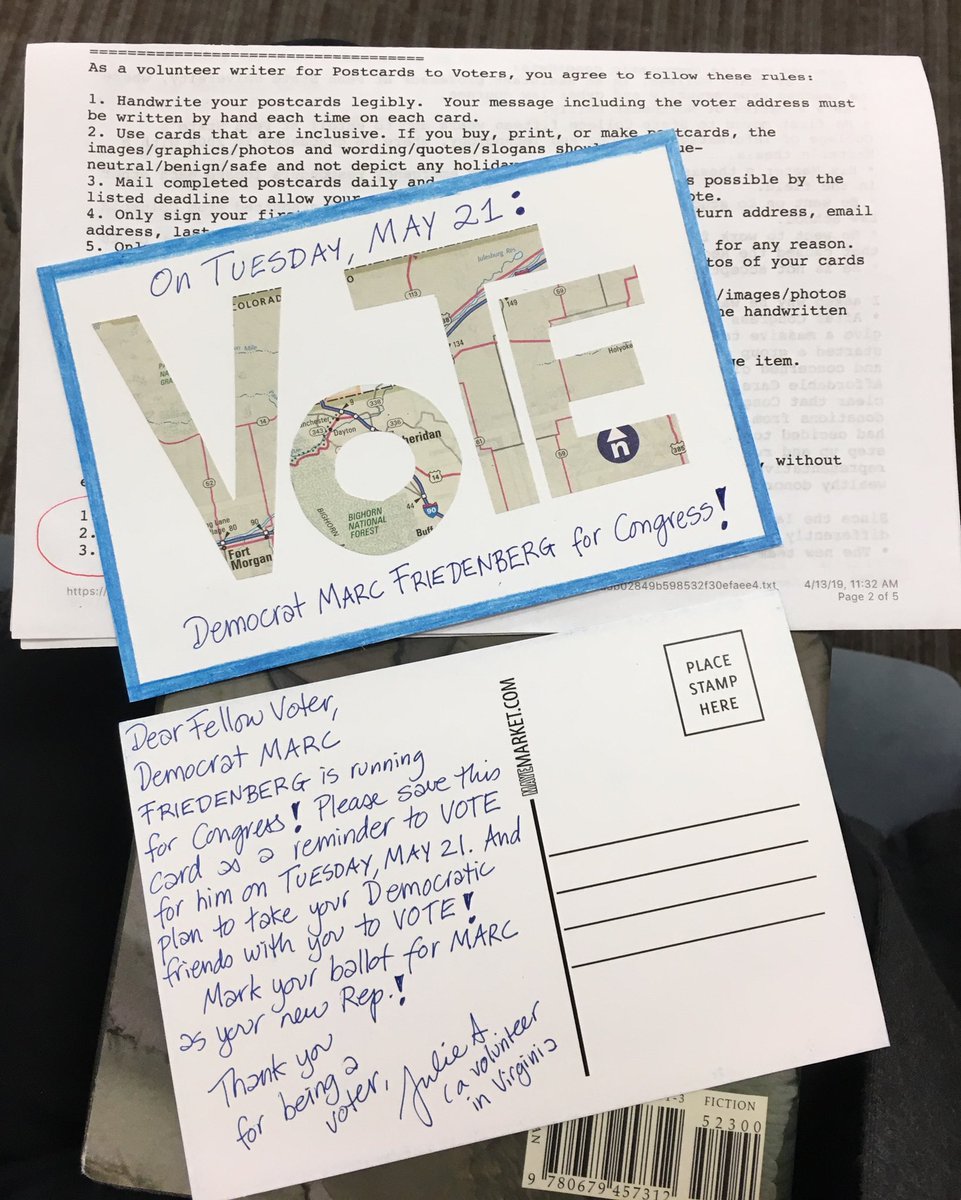 ===================================
As a volunteer writer for Postcards to Voters, you agree to follow these rules:
1. Handwrite your postcards legibly. Your message including the voter address must
be written by hand each time on each card.
2. Use cards that are inclusive. If you buy, print, or make postcards, the
images/graphics/photos and wording/quotes/slogans
neutral/benign/safe and not depict any
3. Mail completed postcards daily and
s possible by the
listed deadline to allow your
4. Only sign your
return address, email
address, last
5.
for any reason.
of your cards
/images/photos
handwritten
item.
, without
1
2.
3.
https://
b02849b598532f30efaee4.txt
4/13/19, 11:32 AM
Page 2 of 5
On TUESDAY, MAY 21:
VOTE
COLORAD
Julesburg Res.
113
59
149
134
14
61
Holyoke
59
385
n
80
90
Fort
Morgan
9
338
343
Dayton
336
heridan
14
44
90
Buff
BIGHORN
BIGHORN
NATIONAL
FOREST
Democrat MARC FRIEDENBERG for Congress!
Dear Fellow Voter,
Democrat MARC
FRIEDENBERG is running
for Congress! Please save this
card as a reminder to VOTE
for him on TUESDAY, MAY 21. And
plan to take your Democratic
friends with you to VOTE!
Mark your ballot for MARC
as your new Rep.!
Thank you
for being a
voter,
Julie A
(a volunteer
in Virginia
MARKET.COM
PLACE
STAMP
HERE
FICTION
52300
9 780679 457312